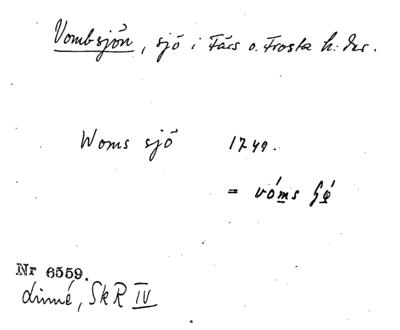 Vombsjön, sjö i Färs o. Frosta h:der.
Woms sjö 1749.
= vóms
Nr 6559.
Linné, SkR IV